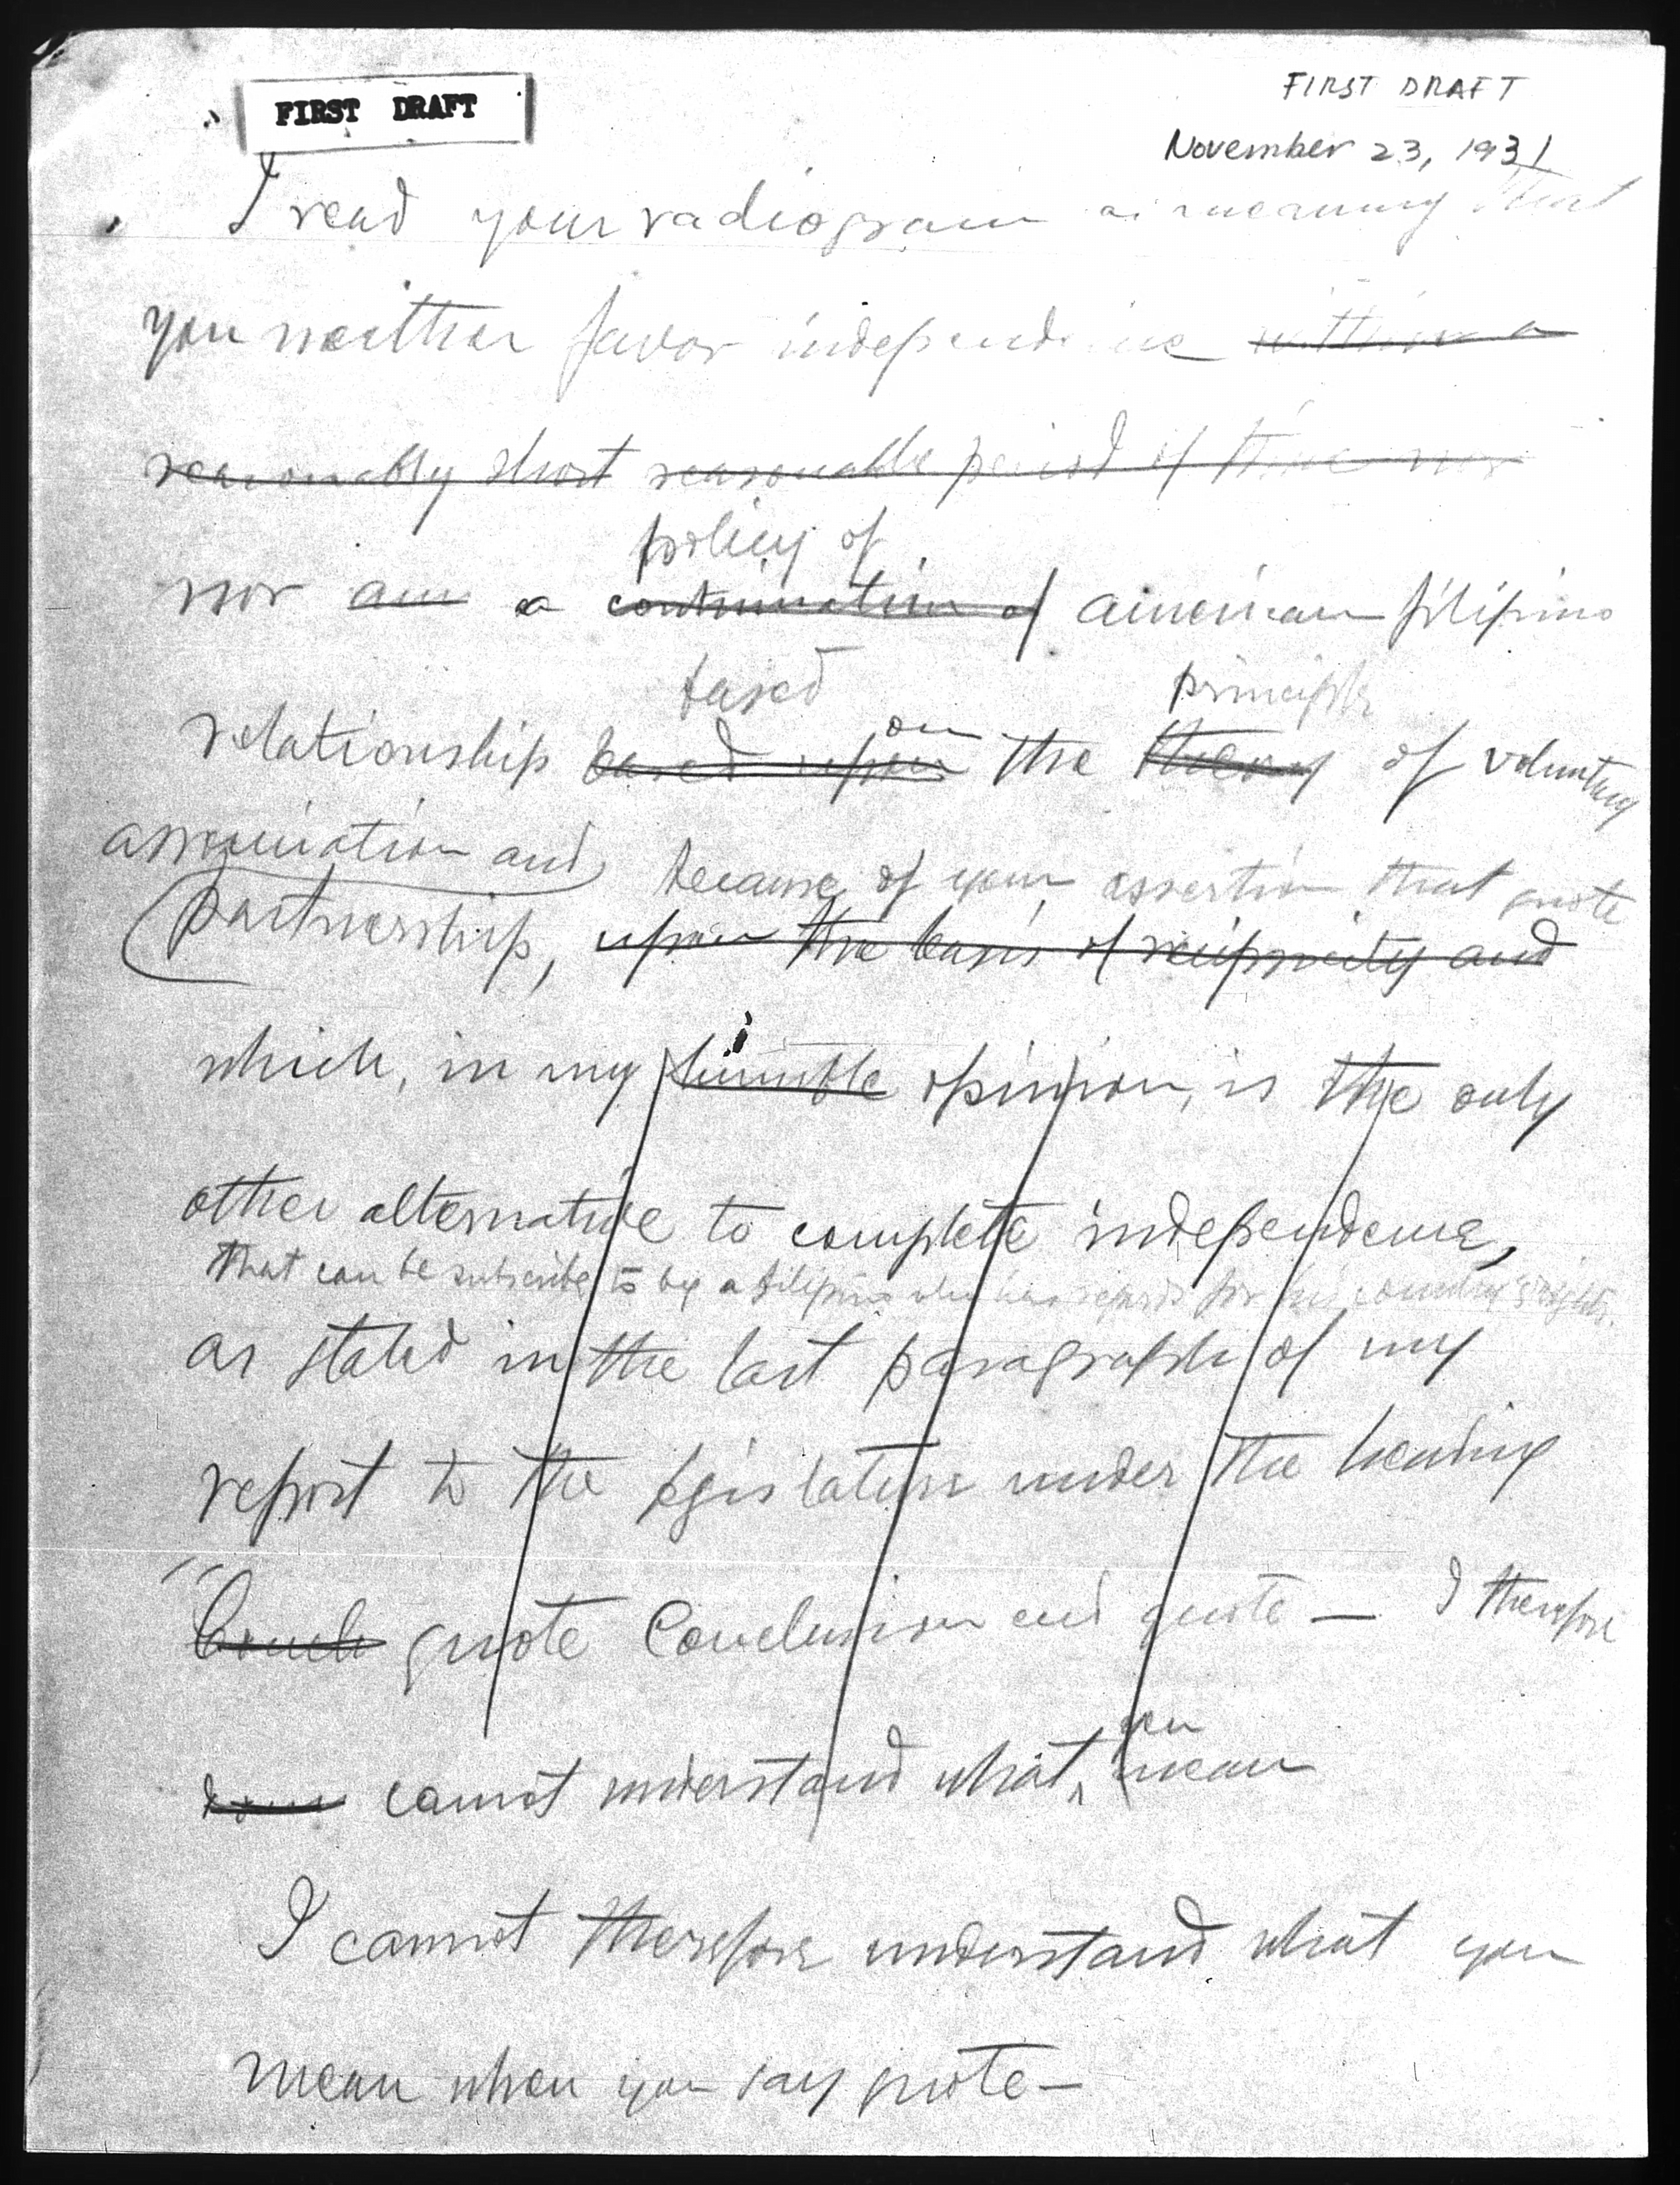 FIRST DRAFT
FIRST DRAFT
November 23, 1931
I read your radiogram as meaning that
you neither favor independence within a
reasonably short reasonable period of time nor
policy of
nor am a continuation of american filipino
based principle
on
relationship based upon the theory of voluntary
association and because of your assertion that quote
partnership, upon the basis of reciprocity and
which, in my humble opinion, is the only
other alternative to complete independence,
that can be subscribe to by a filipino who has regards for his country's rights.
as stated in the last paragraph of my
report to the legislature under the heading
" Concl quote Conclusion end quote — I therefore
you
cannot understand what mean
I cannot therefore understand what you
mean when you say quote —